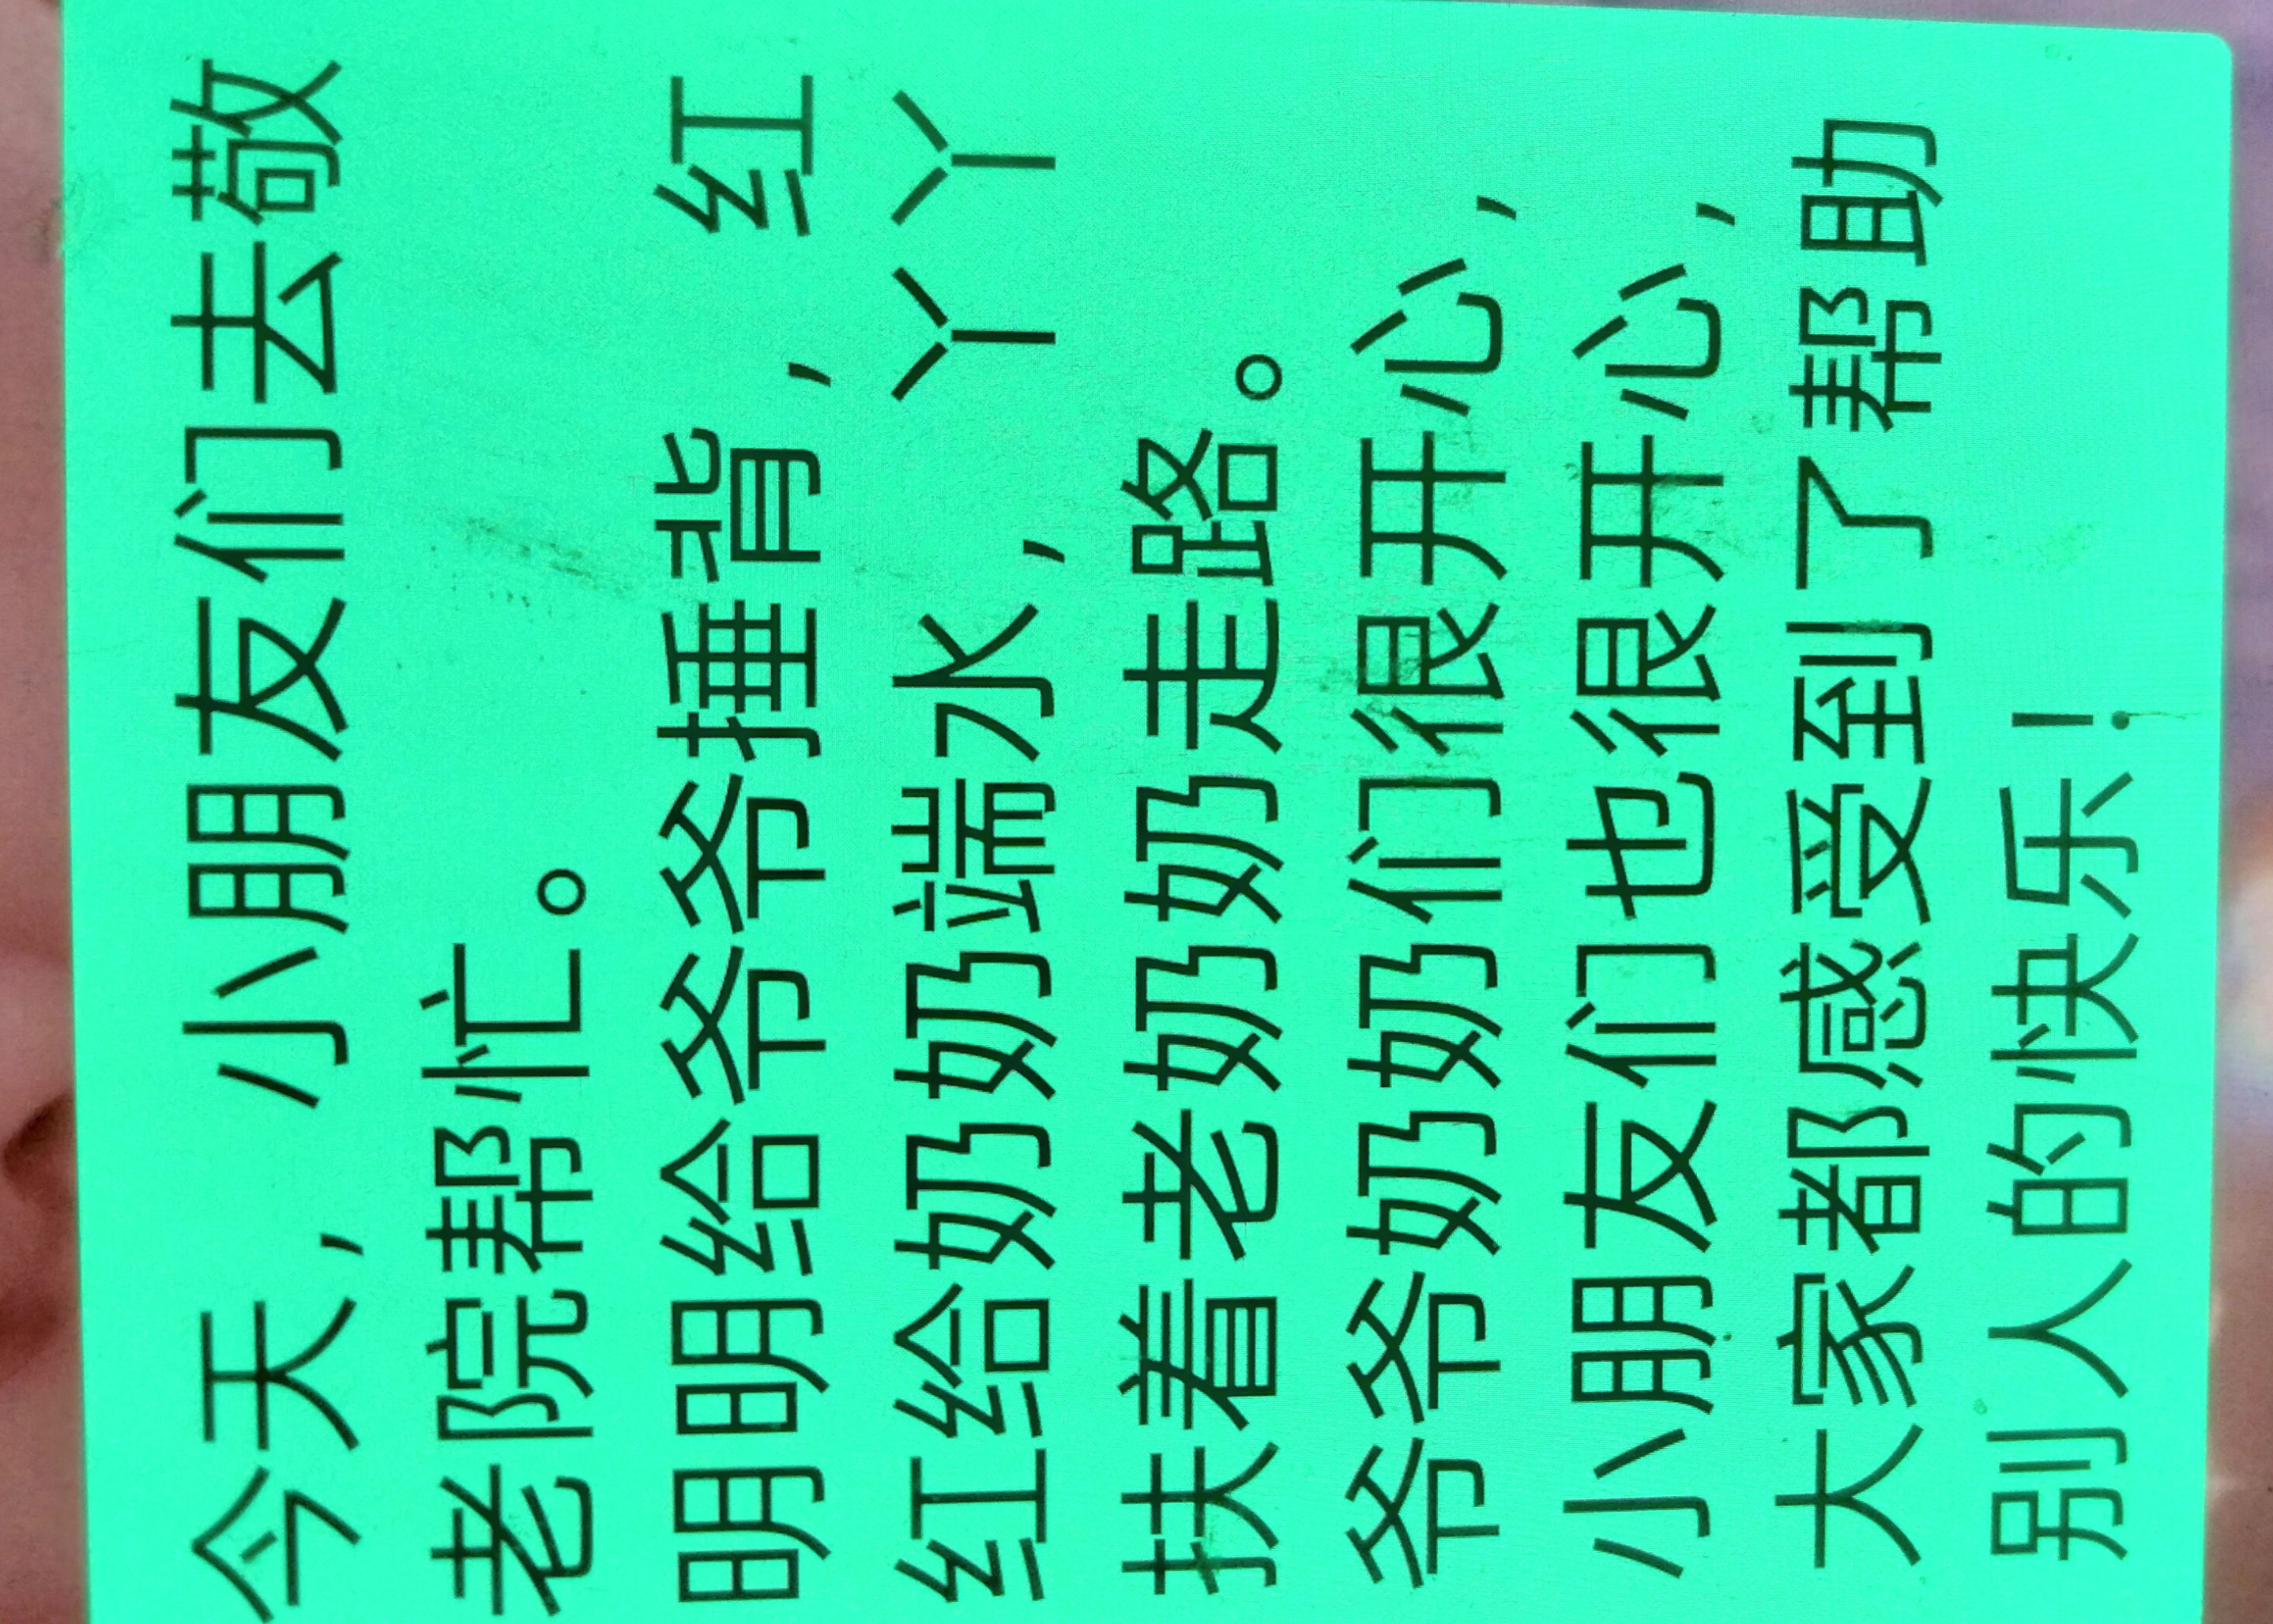 今天，小朋友们去敬
老院帮忙。
明明给爷爷捶背，红
红给奶奶端水，丫丫
扶着老奶奶走路。
爷爷奶奶们很开心，
小朋友们也很开心，
大家都感受到了帮助
别人的快乐！